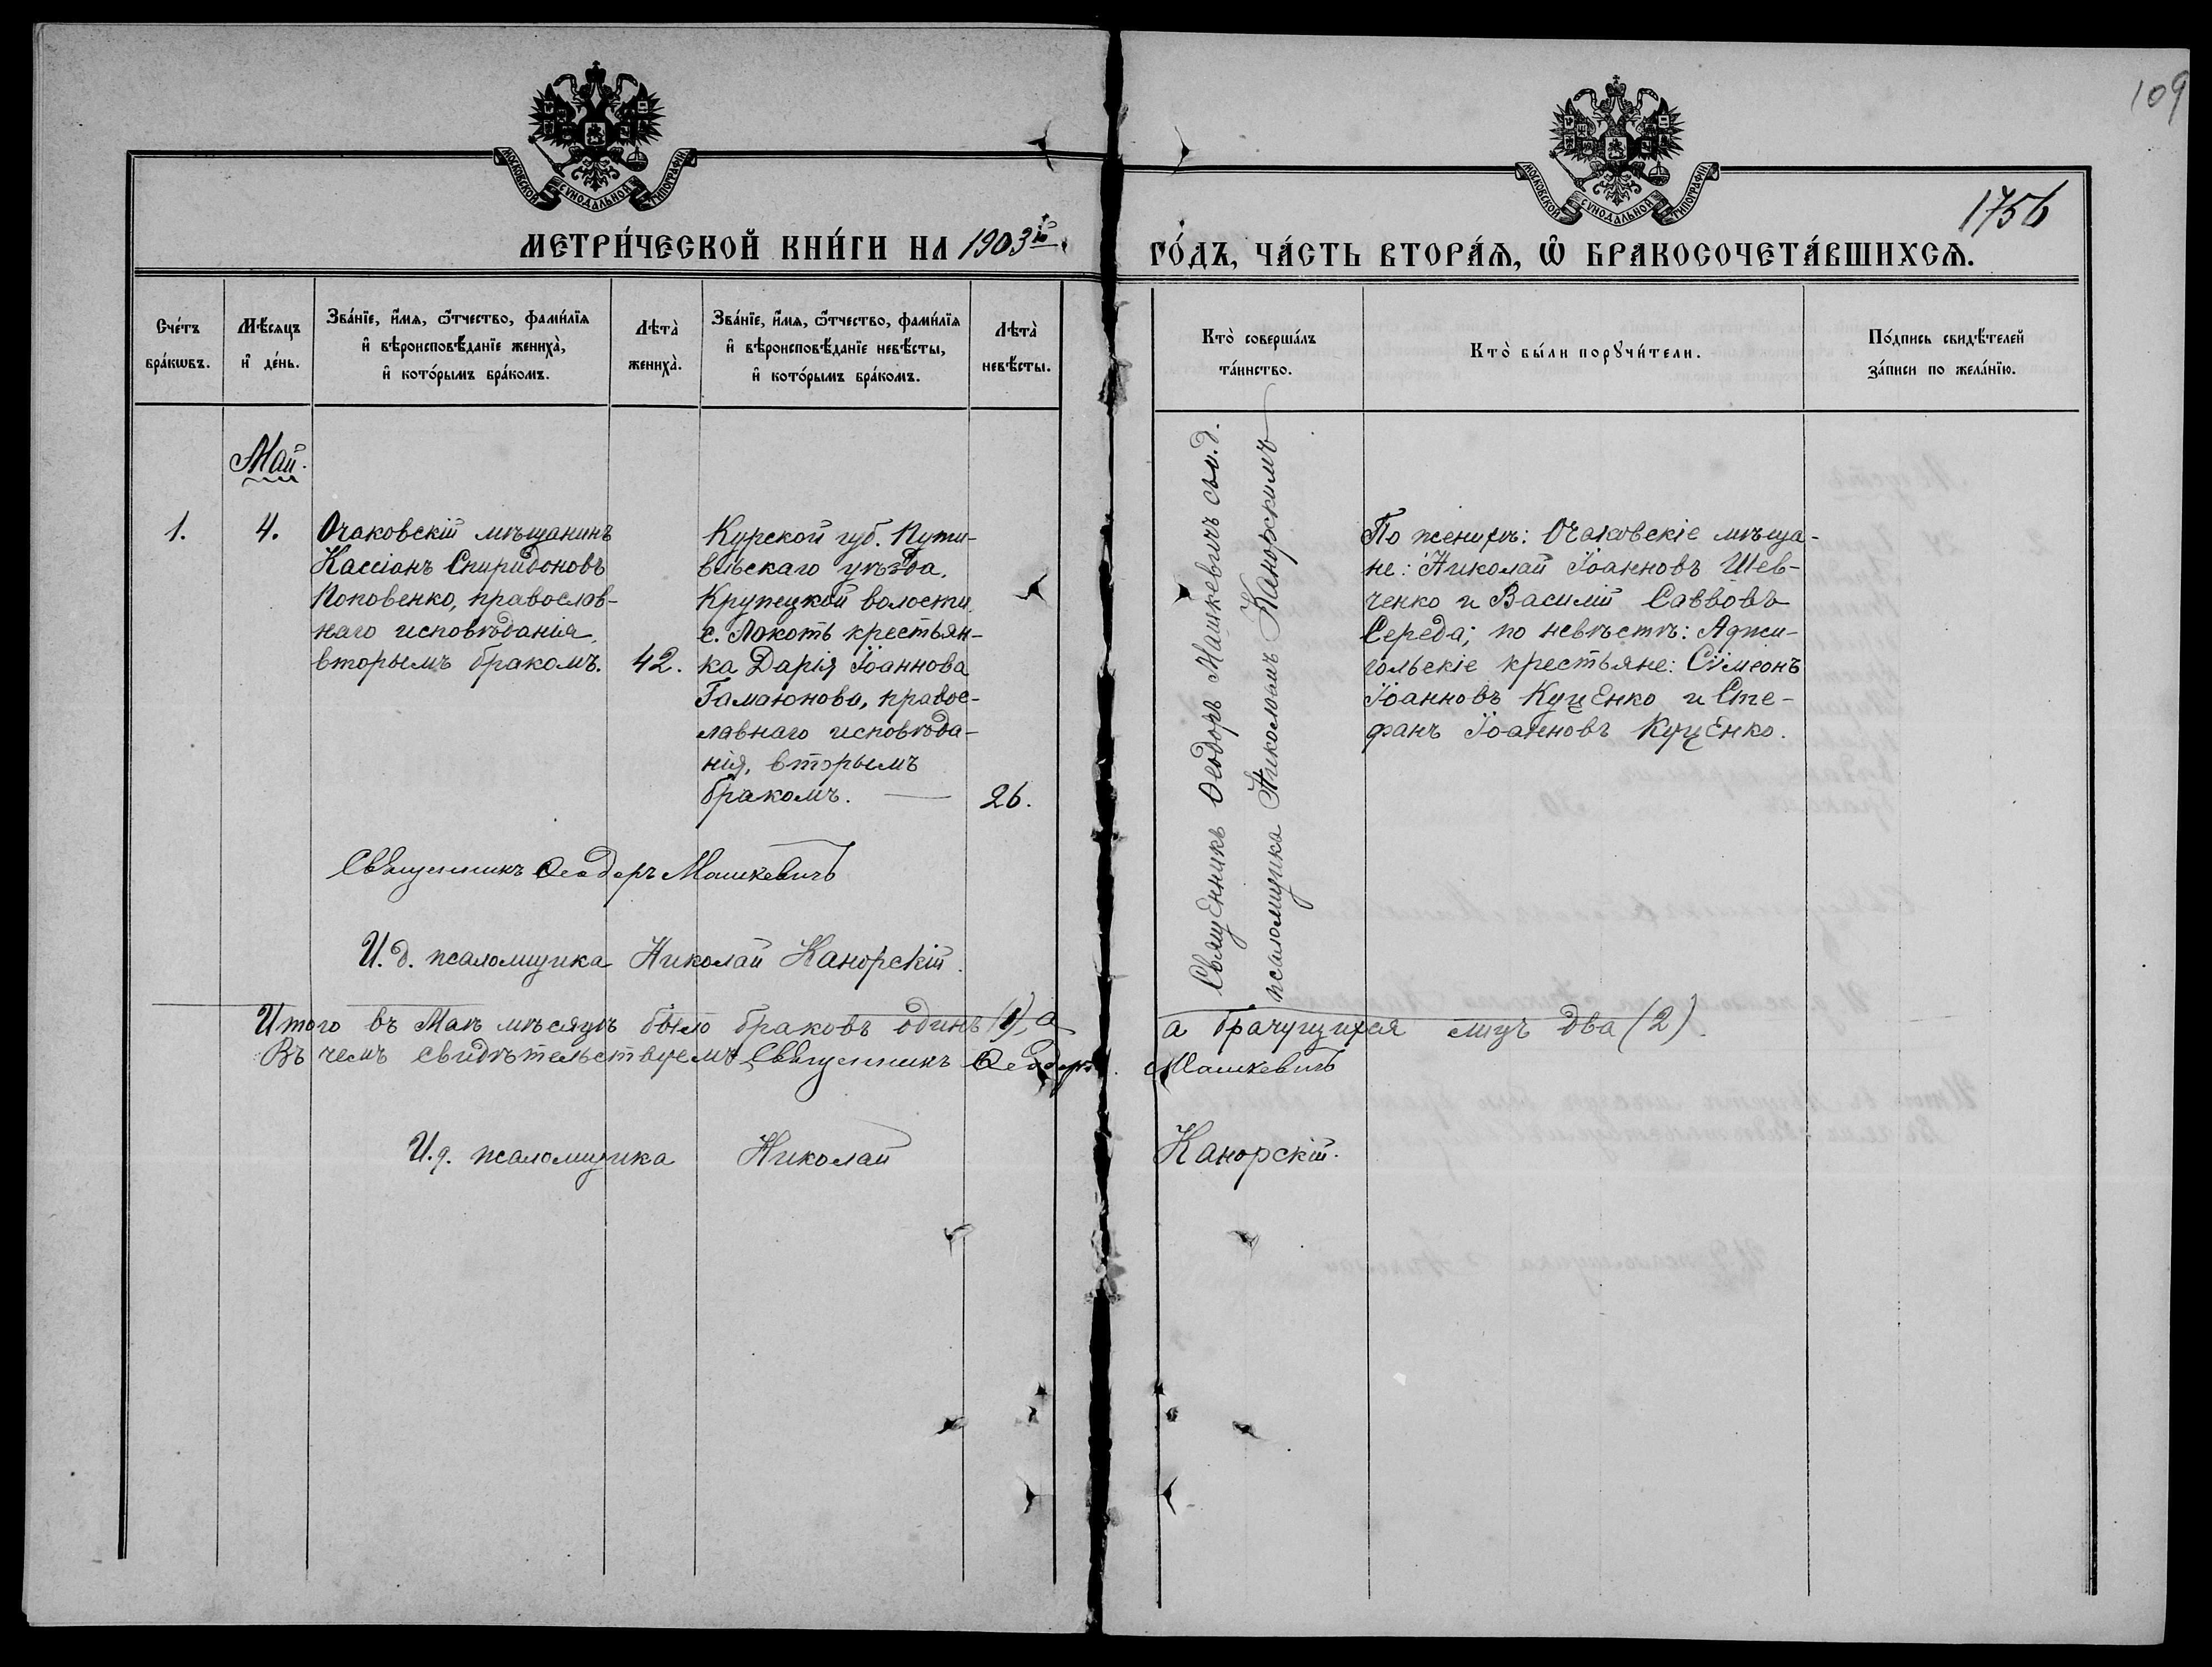 109
МОСКОВСКОЙ СѴНОДАЛЬНОЙ ТИПОГРАФІИ
МОСКОВСКОЙ СѴНОДАЛЬНОЙ ТИПОГРАФІИ
1756
МЕТРИ́ЧЕСКОЙ КНИ́ГИ НА 1903й
ГО́ДЪ, ЧА́СТЬ ВТОРА́Ѧ, Ѡ БРАКОСОЧЕТА́ВШИХСѦ.
Сче́тъ
бра́кѡвъ.
Мѣ́сяцъ
и҆ де́нь.
Зва́нїе, и҆́мѧ, ѻ҆́тчество, фами́лїѧ
и҆ вѣроисповѣ́данїе жениха̀,
и҆ кото́рымъ бра́комъ.
Лѣта̀
жениха̀.
Зва́нїе, и҆́мѧ, ѻ҆́тчество, фами́лїѧ
и҆ вѣроисповѣ́данїе невѣ́сты,
и҆ кото́рымъ бра́комъ.
Лѣта̀
невѣ́сты.
Кто̀ соверша́лъ
та́инство.
Кто̀ бы́ли порꙋчи́тели.
По́дпись свидѣ́телей
за́писи по жела́нїю.
Май.
1.
4.
Очаковскій мѣщанинъ
Кассіанъ Спиридоновъ
Поповенко, православ-
наго исповѣданія,
вторымъ бракомъ.
42.
Курской губ. Пути-
вльскаго уѣзда,
Крупецкой волости,
с. Локоть крестьян-
ка Дарія Іоаннова
Гамаюнова, правос-
лавнаго исповѣда-
нія, вторымъ
бракомъ. —
26.
Священникъ Ѳеодоръ Машкевичъ съ и. д.
псаломщика Николаемъ Канорскимъ
По женихѣ: Очаковскіе мѣща-
не: Николай Іоанновъ Шев-
ченко и Василій Саввовъ
Середа; по невѣстѣ: Аджи-
гольскіе крестьяне: Сѵмеонъ
Іоанновъ Куценко и Сте-
фанъ Іоанновъ Куценко.
Священникъ Ѳеодоръ Машкевичъ
И. д. псаломщика Николай Канорскій.
Итого въ Маѣ мѣсяцѣ было браковъ одинъ (1), а
а брачущихся лицъ два (2)
Въ чемъ свидѣтельствуемъ Священникъ Ѳеодоръ
Машкевичъ
И. д. псаломщика Николай
Канорскій.